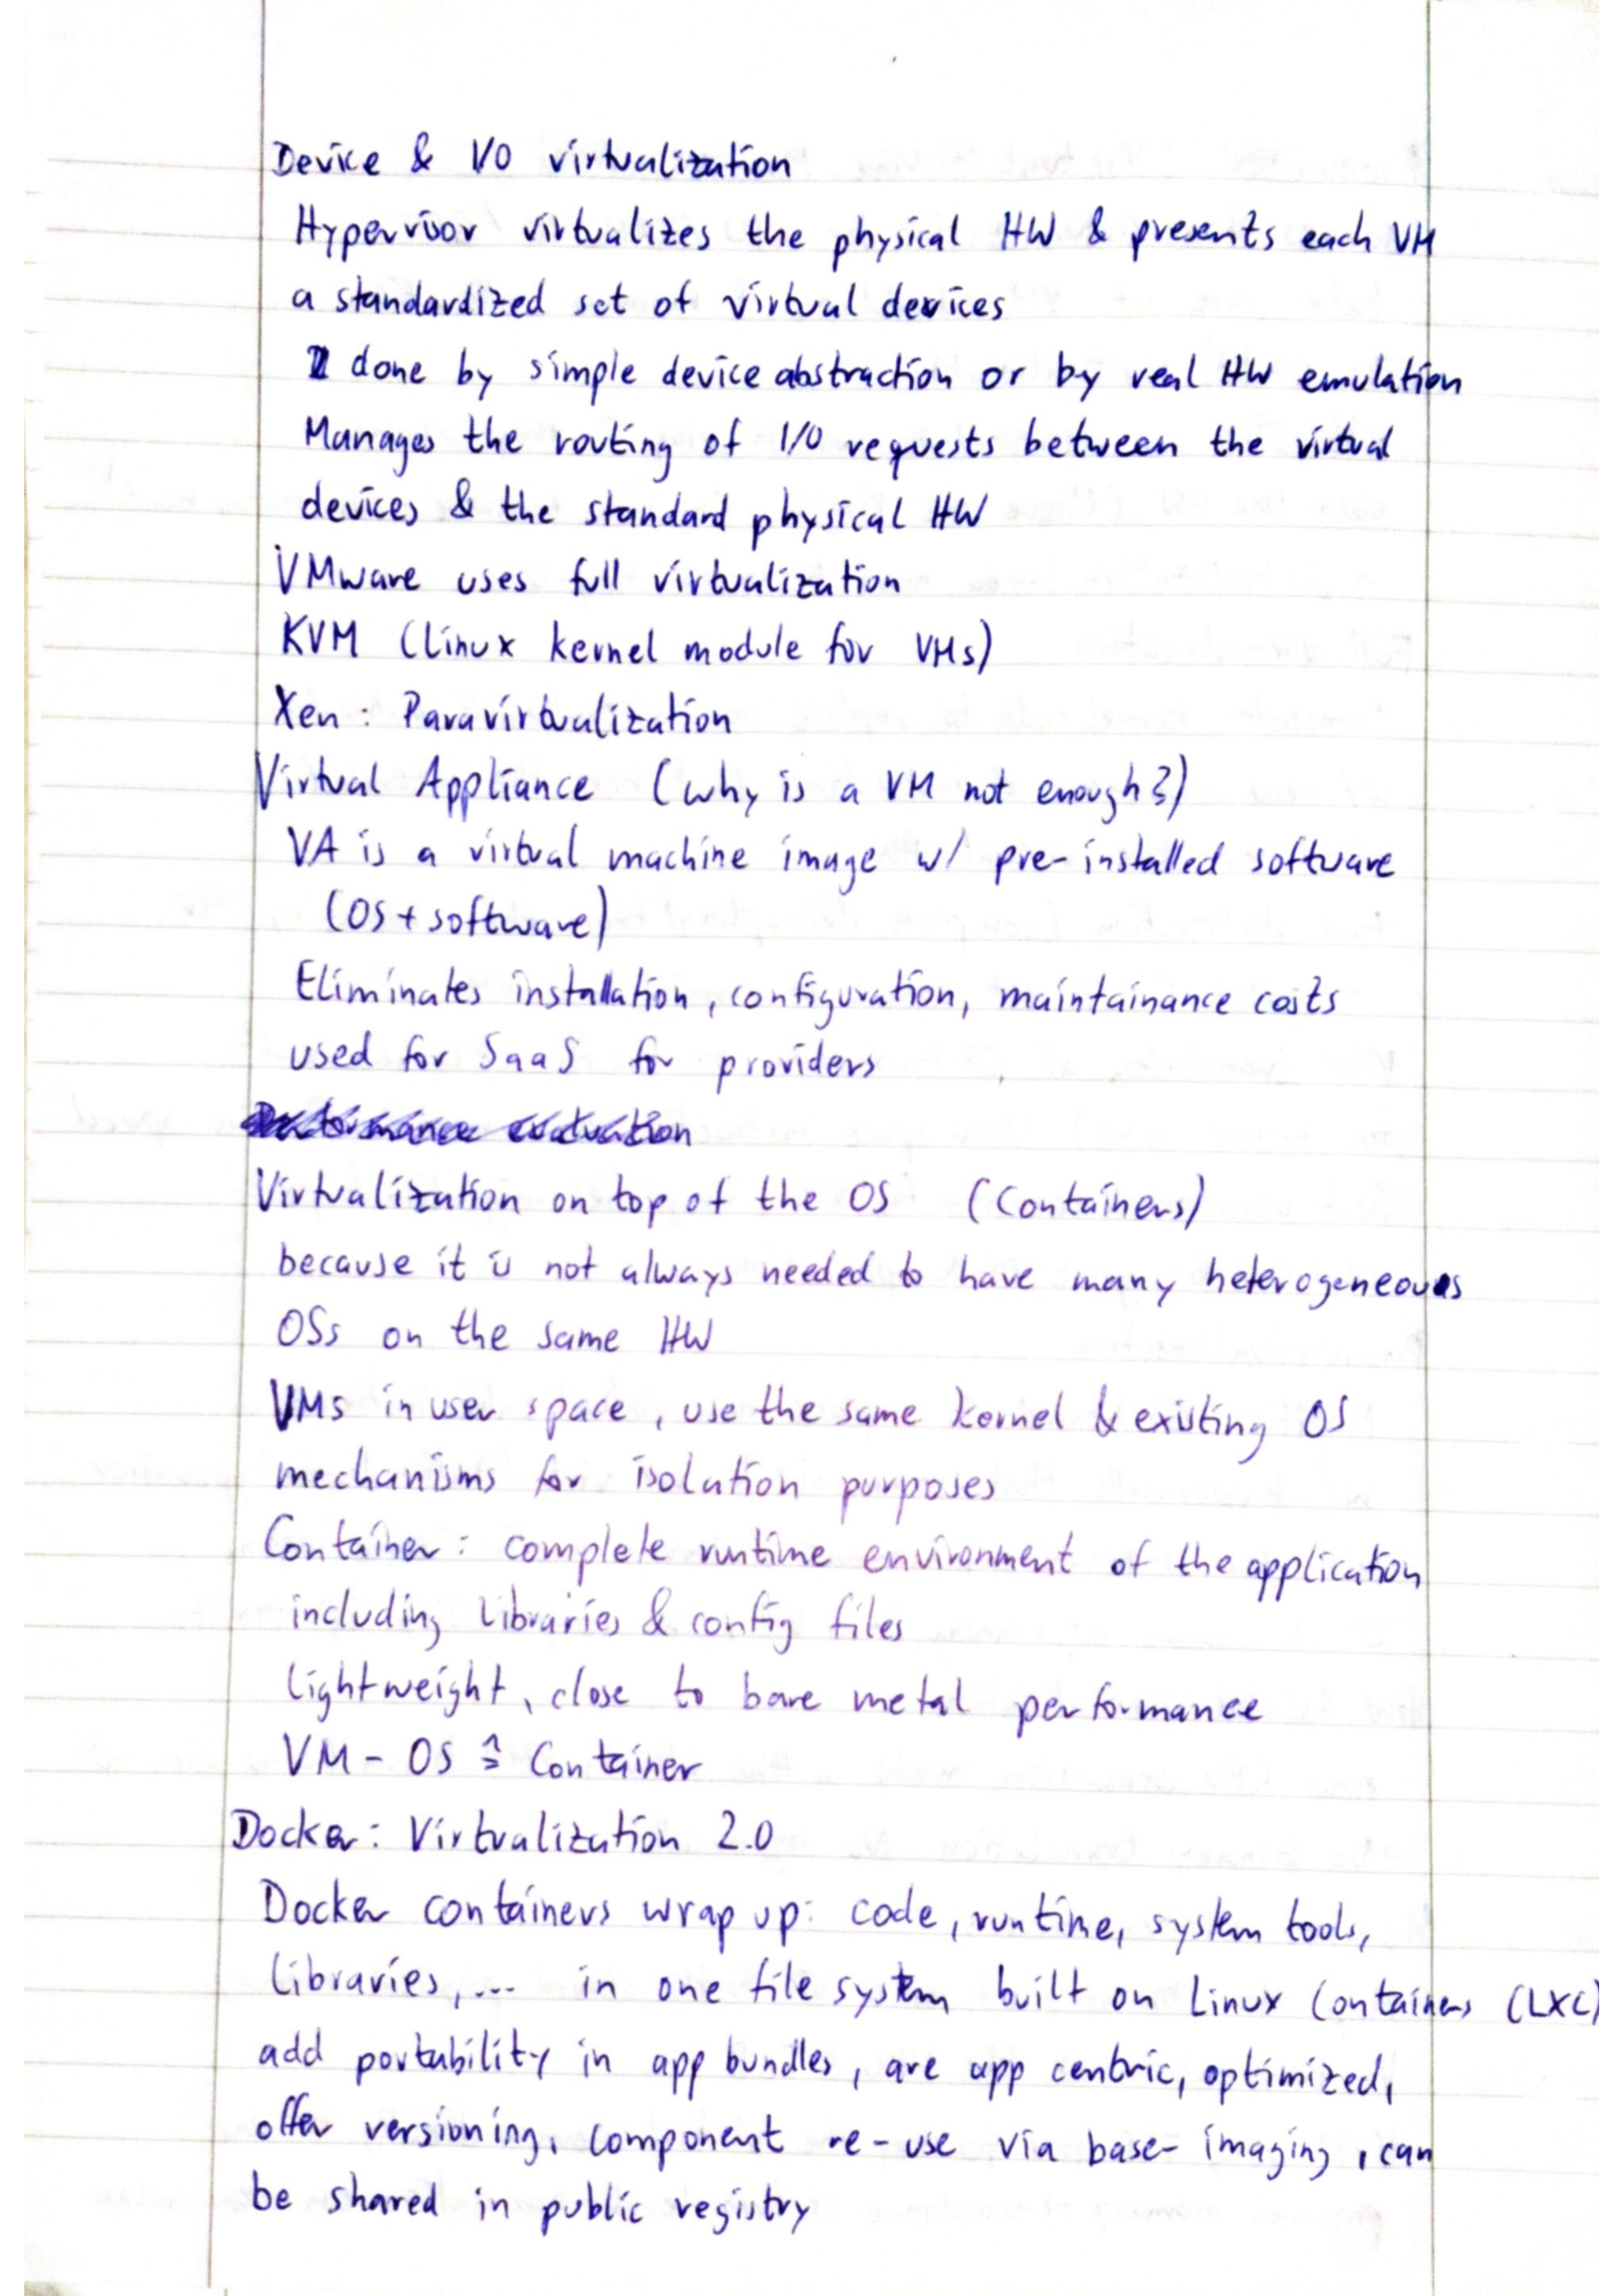 Device & I/O virtualization
Hypervisor virtualizes the physical HW & presents each VM
a standardized set of virtual devices
done by simple device abstraction or by real HW emulation
Manages the routing of I/O requests between the virtual
devices & the standard physical HW
VMware uses full virtualization
KVM (linux kernel module for VMs)
Xen : Paravirtualization
Virtual Appliance (why is a VM not enough?)
VA is a virtual machine image w/ pre-installed software
(OS + software)
Eliminates installation, configuration, maintainance costs
used for SaaS for providers
Performance evaluation
Virtualization on top of the OS (Containers)
because it is not always needed to have many heterogeneous
OSs on the same HW
VMs in user space, use the same kernel & existing OS
mechanisms for isolation purposes
Container: complete runtime environment of the application
including libraries & config files
lightweight, close to bare metal performance
VM - OS ≙ Container
Docker: Virtualization 2.0
Docker containers wrap up: code, runtime, system tools,
libraries,... in one file system built on Linux Containers (LXC)
add portability in app bundles, are app centric, optimized,
offer versioning, component re-use via base-imaging, can
be shared in public registry